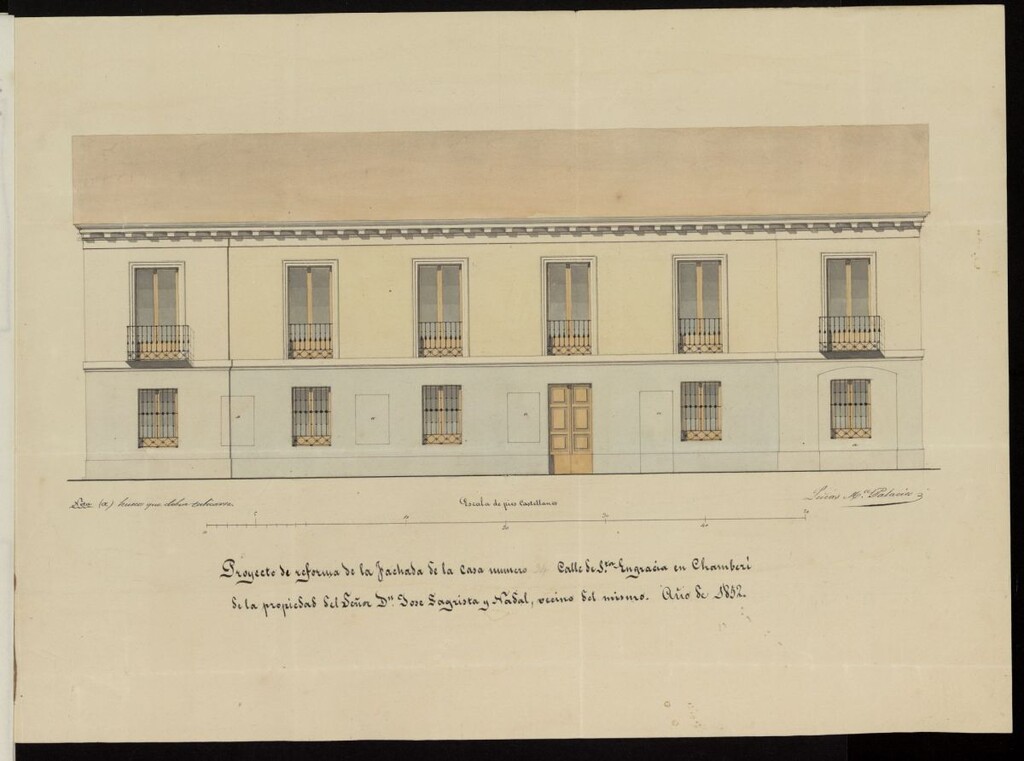 Los (a) huecos que deben cubrirse.
Escala de pies Castellanos
Lucas Mª Palacio
0 10 20 30 40 50
Proyecto de reforma de la fachada de la casa numero Calle de Sta Engracia en Chamberí
de la propiedad del Señor Dn Jose Sagrista y Nadal, vecino del mismo. Año de 1852.